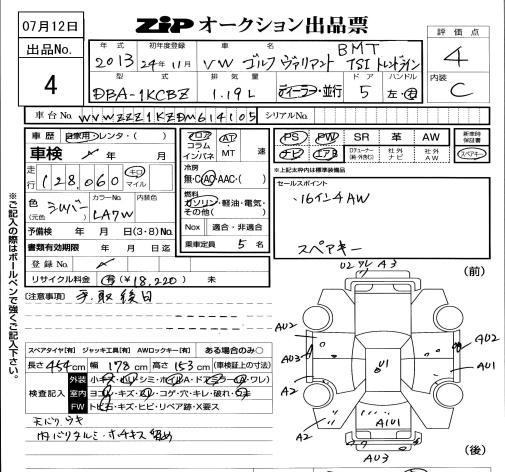 07月12日
ZIP オークション出品票
出品No. 4
評価点 4
内装 C
年式 2013 初年度登録 24年11月 車名 VW ゴルフ ヴァリアント BMT TSI トレンドライン
型式 DBA-1KCBZ 排気量 1.19L ディーラー・並行 ドア 5 ハンドル 左・右
車台No. WVWZZZ1KZDM614105 シリアルNo.
車歴 自家用 レンタ・( )
車検 年 月
走行 128,060 キロ マイル
色(元色) シルバー カラーNo. LA7W 内装色
予備検 年 月 日(3・8)No.
書類有効期限 年 月 日迄
登録No.
リサイクル料金 有(¥18,220) 未
フロア コラム インパネ AT・MT 速
冷房 無・C・AC・AAC・( )
燃料 ガソリン・軽油・電気・その他( )
Nox 適合・非適合
乗車定員 5 名
PS PW SR 革 AW 新車時保証書
ナビ エアB スペアキー
※上記太枠内は標準装備品
セールスポイント
・16インチAW
スペアキー
[注意事項] 手取後日
※ご記入の際はボールペンで強くご記入下さい。
スペアタイヤ[有] ジャッキ工具[有] AWロックキー[有] ある場合のみ〇
長さ 454cm 幅 178cm 高さ 153cm (車検証上の寸法)
検査記入
外装
室内
FW トビ石・キズ・ヒビ・リペア跡・X要ス
天バリウキ
内バリタルミ・ホチキス留め
U2 ワレ A3
(前)
AU2
AU3
A2
A2
AU2
AU1
A2
U1
AU1
AU3
(後)